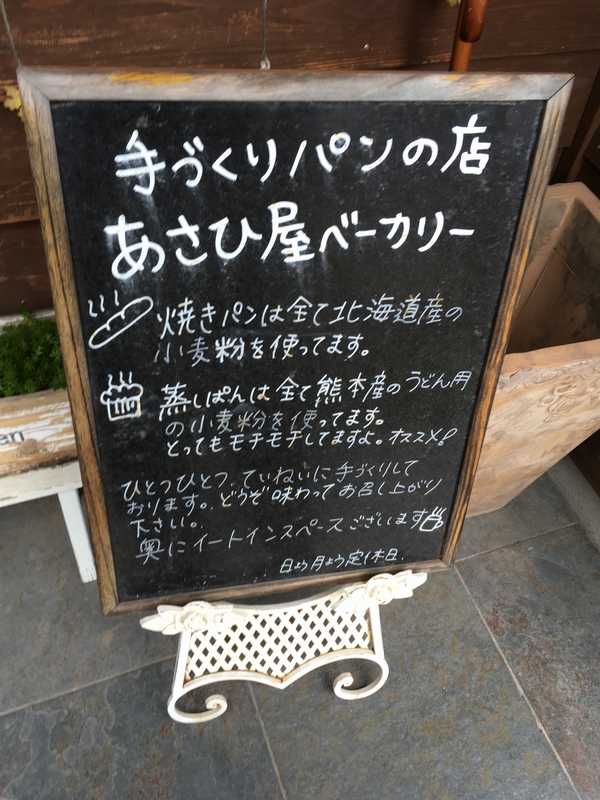 手づくりパンの店
あさひ屋ベーカリー
焼きパンは全て北海道産の
小麦粉を使ってます。
蒸しぱんは全て熊本産のうどん用
の小麦粉を使ってます。
とってもモチモチしてますよ。オススメ!
ひとつひとつ、ていねいに手づくりして
おります。どうぞ味わってお召し上がり
下さい。
奥にイートインスペースございます
日よう月よう定休日.